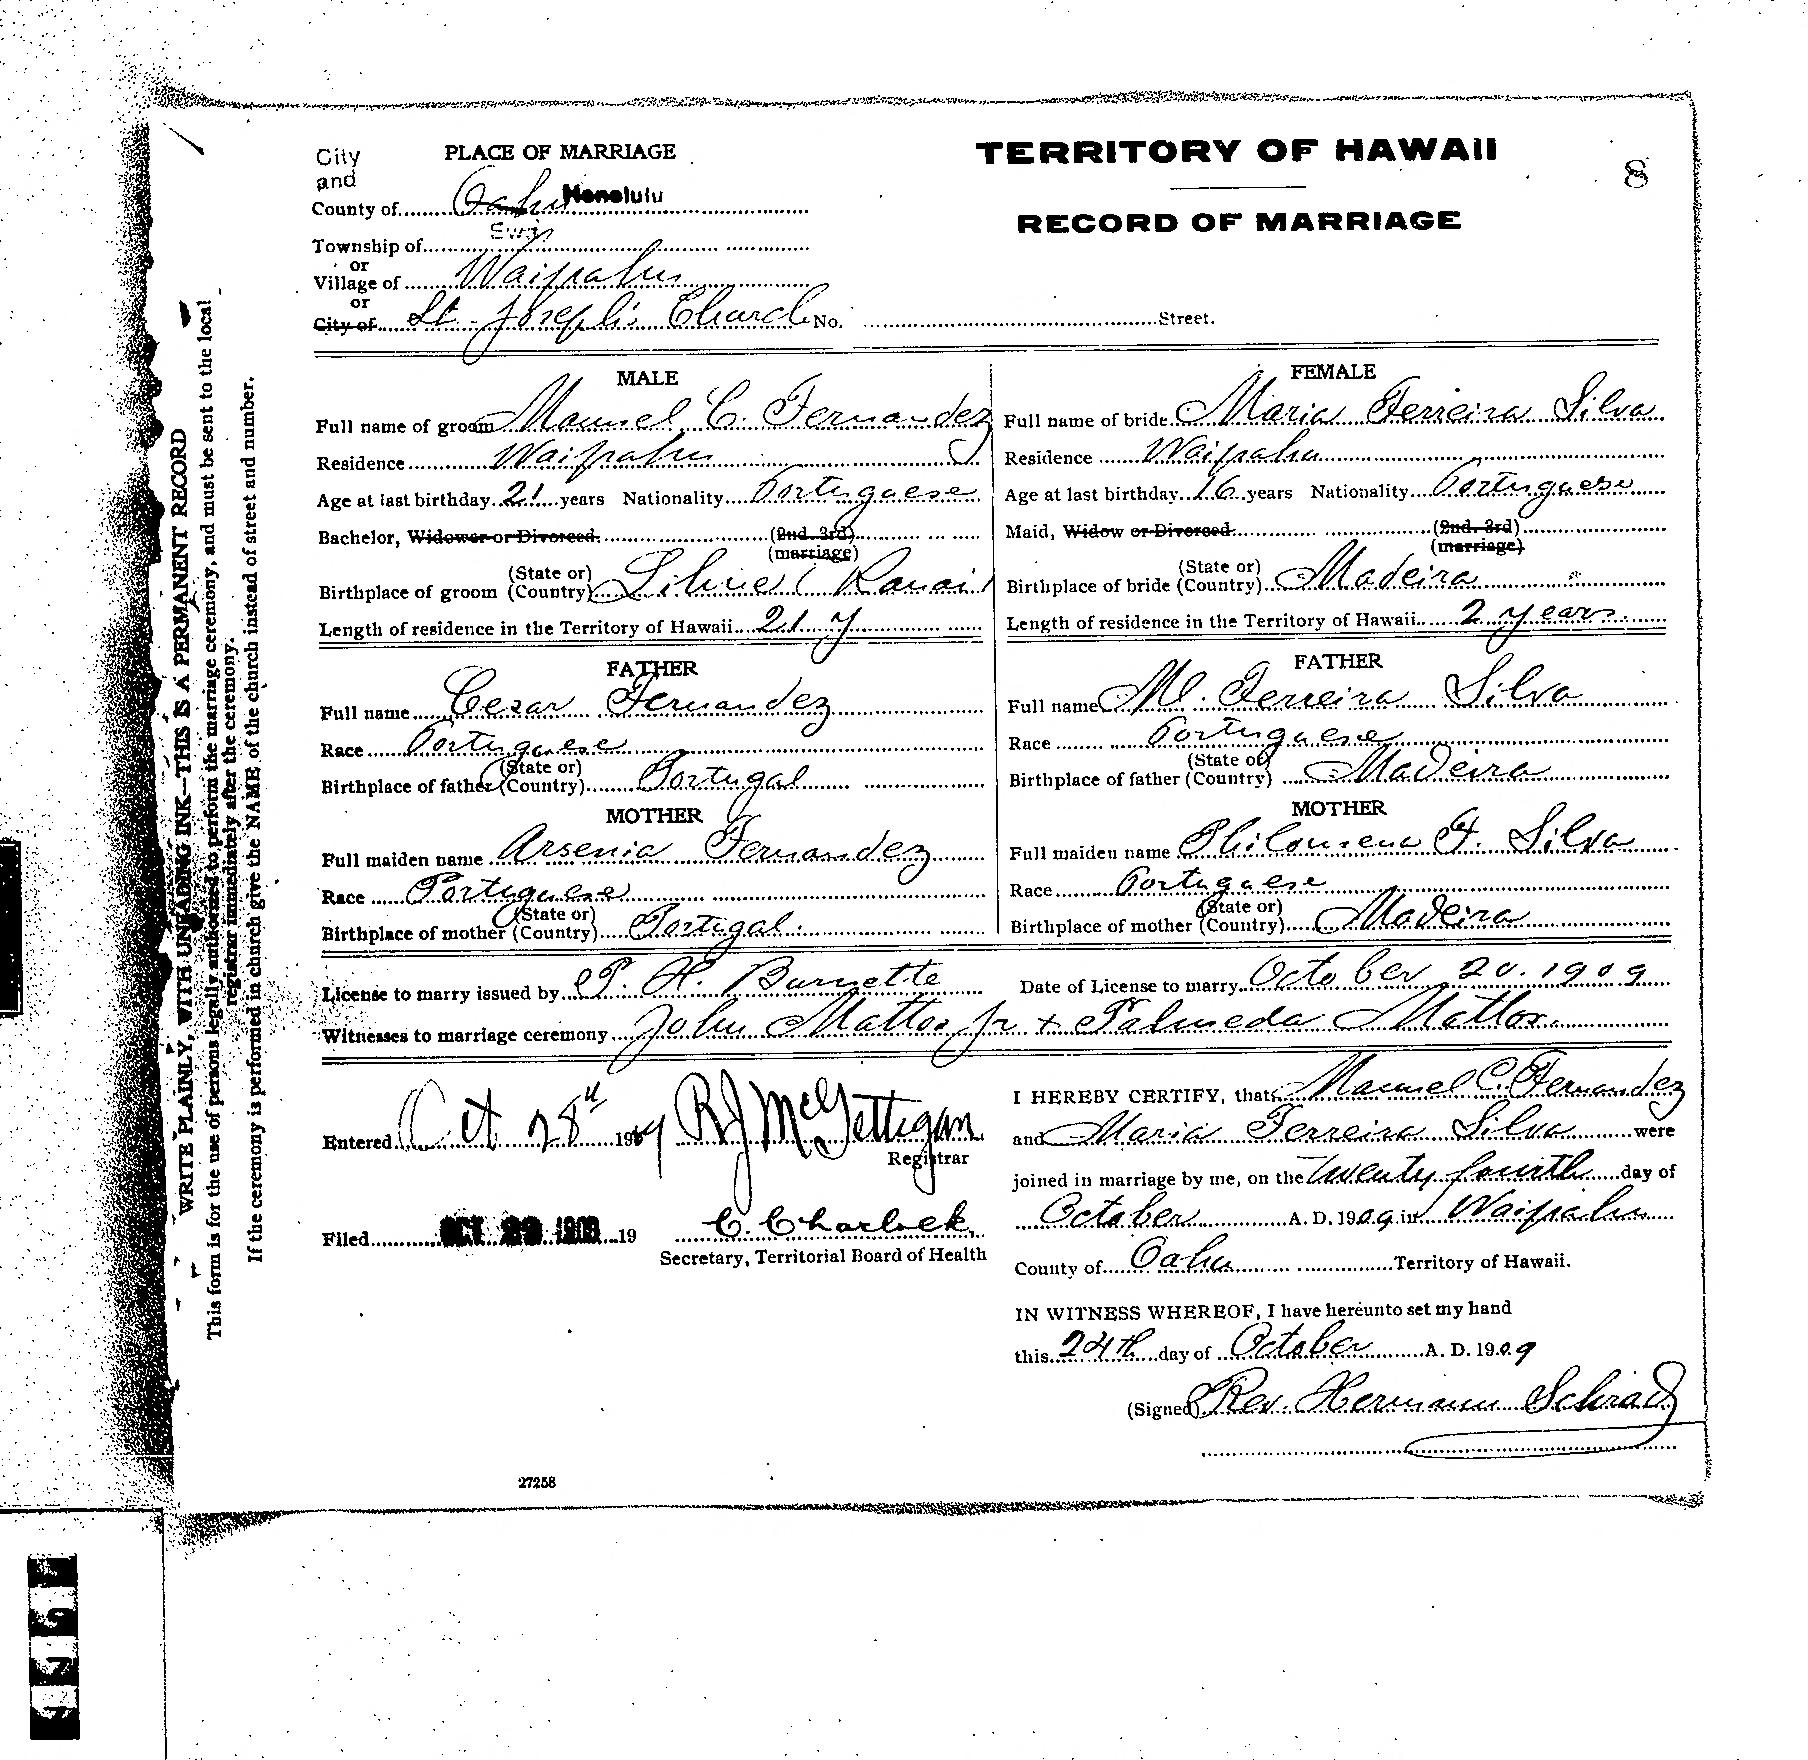 TERRITORY OF HAWAII
RECORD OF MARRIAGE
8
PLACE OF MARRIAGE
City
and
County of Oahu Honolulu
Township of Ewa
or
Village of Waipahu
or
City of St. Joseph's Church No. Street.
MALE
Full name of groom Manuel C. Fernandez
Residence Waipahu
Age at last birthday 21 years Nationality Portuguese
Bachelor, Widower or Divorced. (2nd, 3rd)
(marriage)
Birthplace of groom (State or) (Country) Kauai
Length of residence in the Territory of Hawaii 21 y
FATHER
Full name Cezar Fernandez
Race Portuguese
Birthplace of father (State or) (Country) Portugal
MOTHER
Full maiden name Arsenia Fernandez
Race Portuguese
Birthplace of mother (State or) (Country) Portugal.
FEMALE
Full name of bride Maria Ferreira Silva
Residence Waipahu
Age at last birthday 16 years Nationality Portuguese
Maid, Widow or Divorced. (2nd, 3rd)
(marriage)
Birthplace of bride (State or) (Country) Madeira
Length of residence in the Territory of Hawaii 2 years.
FATHER
Full name M. Ferreira Silva
Race Portuguese
Birthplace of father (State or) (Country) Madeira
MOTHER
Full maiden name Philomena F. Silva
Race Portuguese
Birthplace of mother (State or) (Country) Madeira
License to marry issued by P. H. Burnette Date of License to marry October 20. 1909
Witnesses to marriage ceremony John Mattos jr + Palmeda Mattos.
Entered Oct 28th 1909 RJ McGettigan
Registrar
Filed OCT 29 1909 19 C. Charlock
Secretary, Territorial Board of Health
I HEREBY CERTIFY, that Manuel C. Fernandez
and Maria Ferreira Silva were
joined in marriage by me, on the twenty fourth day of
October A. D. 1909 in Waipahu
County of Oahu Territory of Hawaii.
IN WITNESS WHEREOF, I have hereunto set my hand
this 24th day of October A. D. 1909
(Signed) Rev. Hermann Schrad
27258
WRITE PLAINLY, WITH UNFADING INK—THIS IS A PERMANENT RECORD
This form is for the use of persons legally authorized to perform the marriage ceremony, and must be sent to the local
registrar immediately after the ceremony.
If the ceremony is performed in church give the NAME of the church instead of street and number.